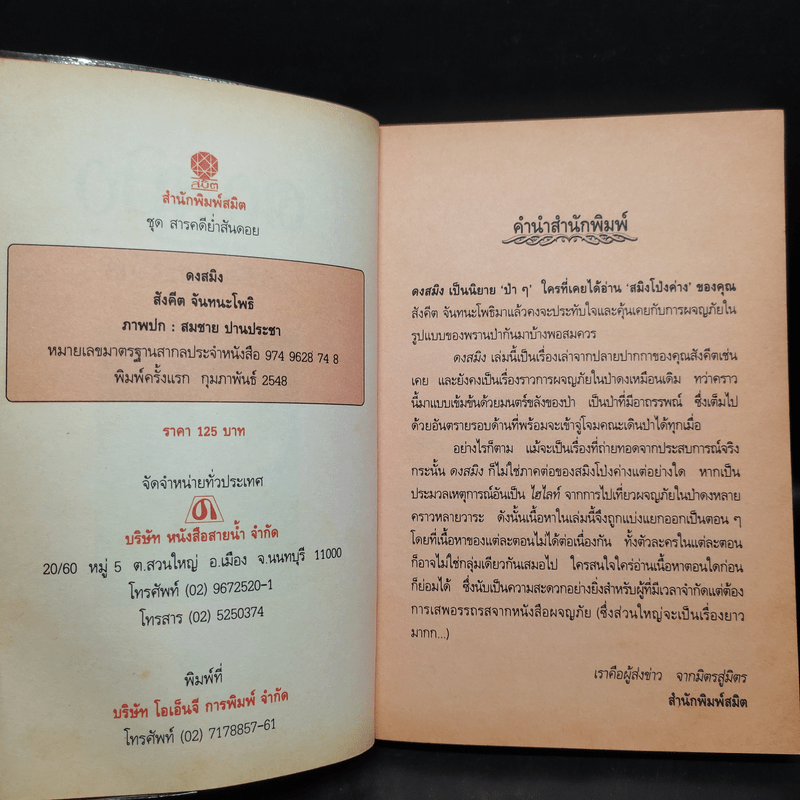 สมิต
สำนักพิมพ์สมิต
ชุด สารคดีย่ำสันดอย
ดงสมิง
สังคีต จันทนะโพธิ
ภาพปก : สมชาย ปานประชา
หมายเลขมาตรฐานสากลประจำหนังสือ 974 9628 74 8
พิมพ์ครั้งแรก กุมภาพันธ์ 2548
ราคา 125 บาท
จัดจำหน่ายทั่วประเทศ
บริษัท หนังสือสายน้ำ จำกัด
20/60 หมู่ 5 ต.สวนใหญ่ อ.เมือง จ.นนทบุรี 11000
โทรศัพท์ (02) 9672520-1
โทรสาร (02) 5250374
พิมพ์ที่
บริษัท โอเอ็นจี การพิมพ์ จำกัด
โทรศัพท์ (02) 7178857-61
คำนำสำนักพิมพ์
ดงสมิง เป็นนิยาย ‘ป่า ๆ’ ใครที่เคยได้อ่าน ‘สมิงโป่งค่าง’ ของคุณ
สังคีต จันทนะโพธิมาแล้วคงจะประทับใจและคุ้นเคยกับการผจญภัยใน
รูปแบบของพรานป่ากันมาบ้างพอสมควร
ดงสมิง เล่มนี้เป็นเรื่องเล่าจากปลายปากกาของคุณสังคีตเช่น
เคย และยังคงเป็นเรื่องราวการผจญภัยในป่าดงเหมือนเดิม ทว่าคราว
นี้มาแบบเข้มข้นด้วยมนตร์ขลังของป่า เป็นป่าที่มีอาถรรพณ์ ซึ่งเต็มไป
ด้วยอันตรายรอบด้านที่พร้อมจะเข้าจู่โจมคณะเดินป่าได้ทุกเมื่อ
อย่างไรก็ตาม แม้จะเป็นเรื่องที่ถ่ายทอดจากประสบการณ์จริง
กระนั้น ดงสมิง ก็ไม่ใช่ภาคต่อของสมิงโป่งค่างแต่อย่างใด หากเป็น
ประมวลเหตุการณ์อันเป็น ไฮไลท์ จากการไปเที่ยวผจญภัยในป่าดงหลาย
คราวหลายวาระ ดังนั้นเนื้อหาในเล่มนี้จึงถูกแบ่งแยกออกเป็นตอน ๆ
โดยที่เนื้อหาของแต่ละตอนไม่ได้ต่อเนื่องกัน ทั้งตัวละครในแต่ละตอน
ก็อาจไม่ใช่กลุ่มเดียวกันเสมอไป ใครสนใจใคร่อ่านเนื้อหาตอนใดก่อน
ก็ย่อมได้ ซึ่งนับเป็นความสะดวกอย่างยิ่งสำหรับผู้ที่มีเวลาจำกัดแต่ต้อง
การเสพอรรถรสจากหนังสือผจญภัย (ซึ่งส่วนใหญ่จะเป็นเรื่องยาว
มากก...)
เราคือผู้ส่งข่าว จากมิตรสู่มิตร
สำนักพิมพ์สมิต